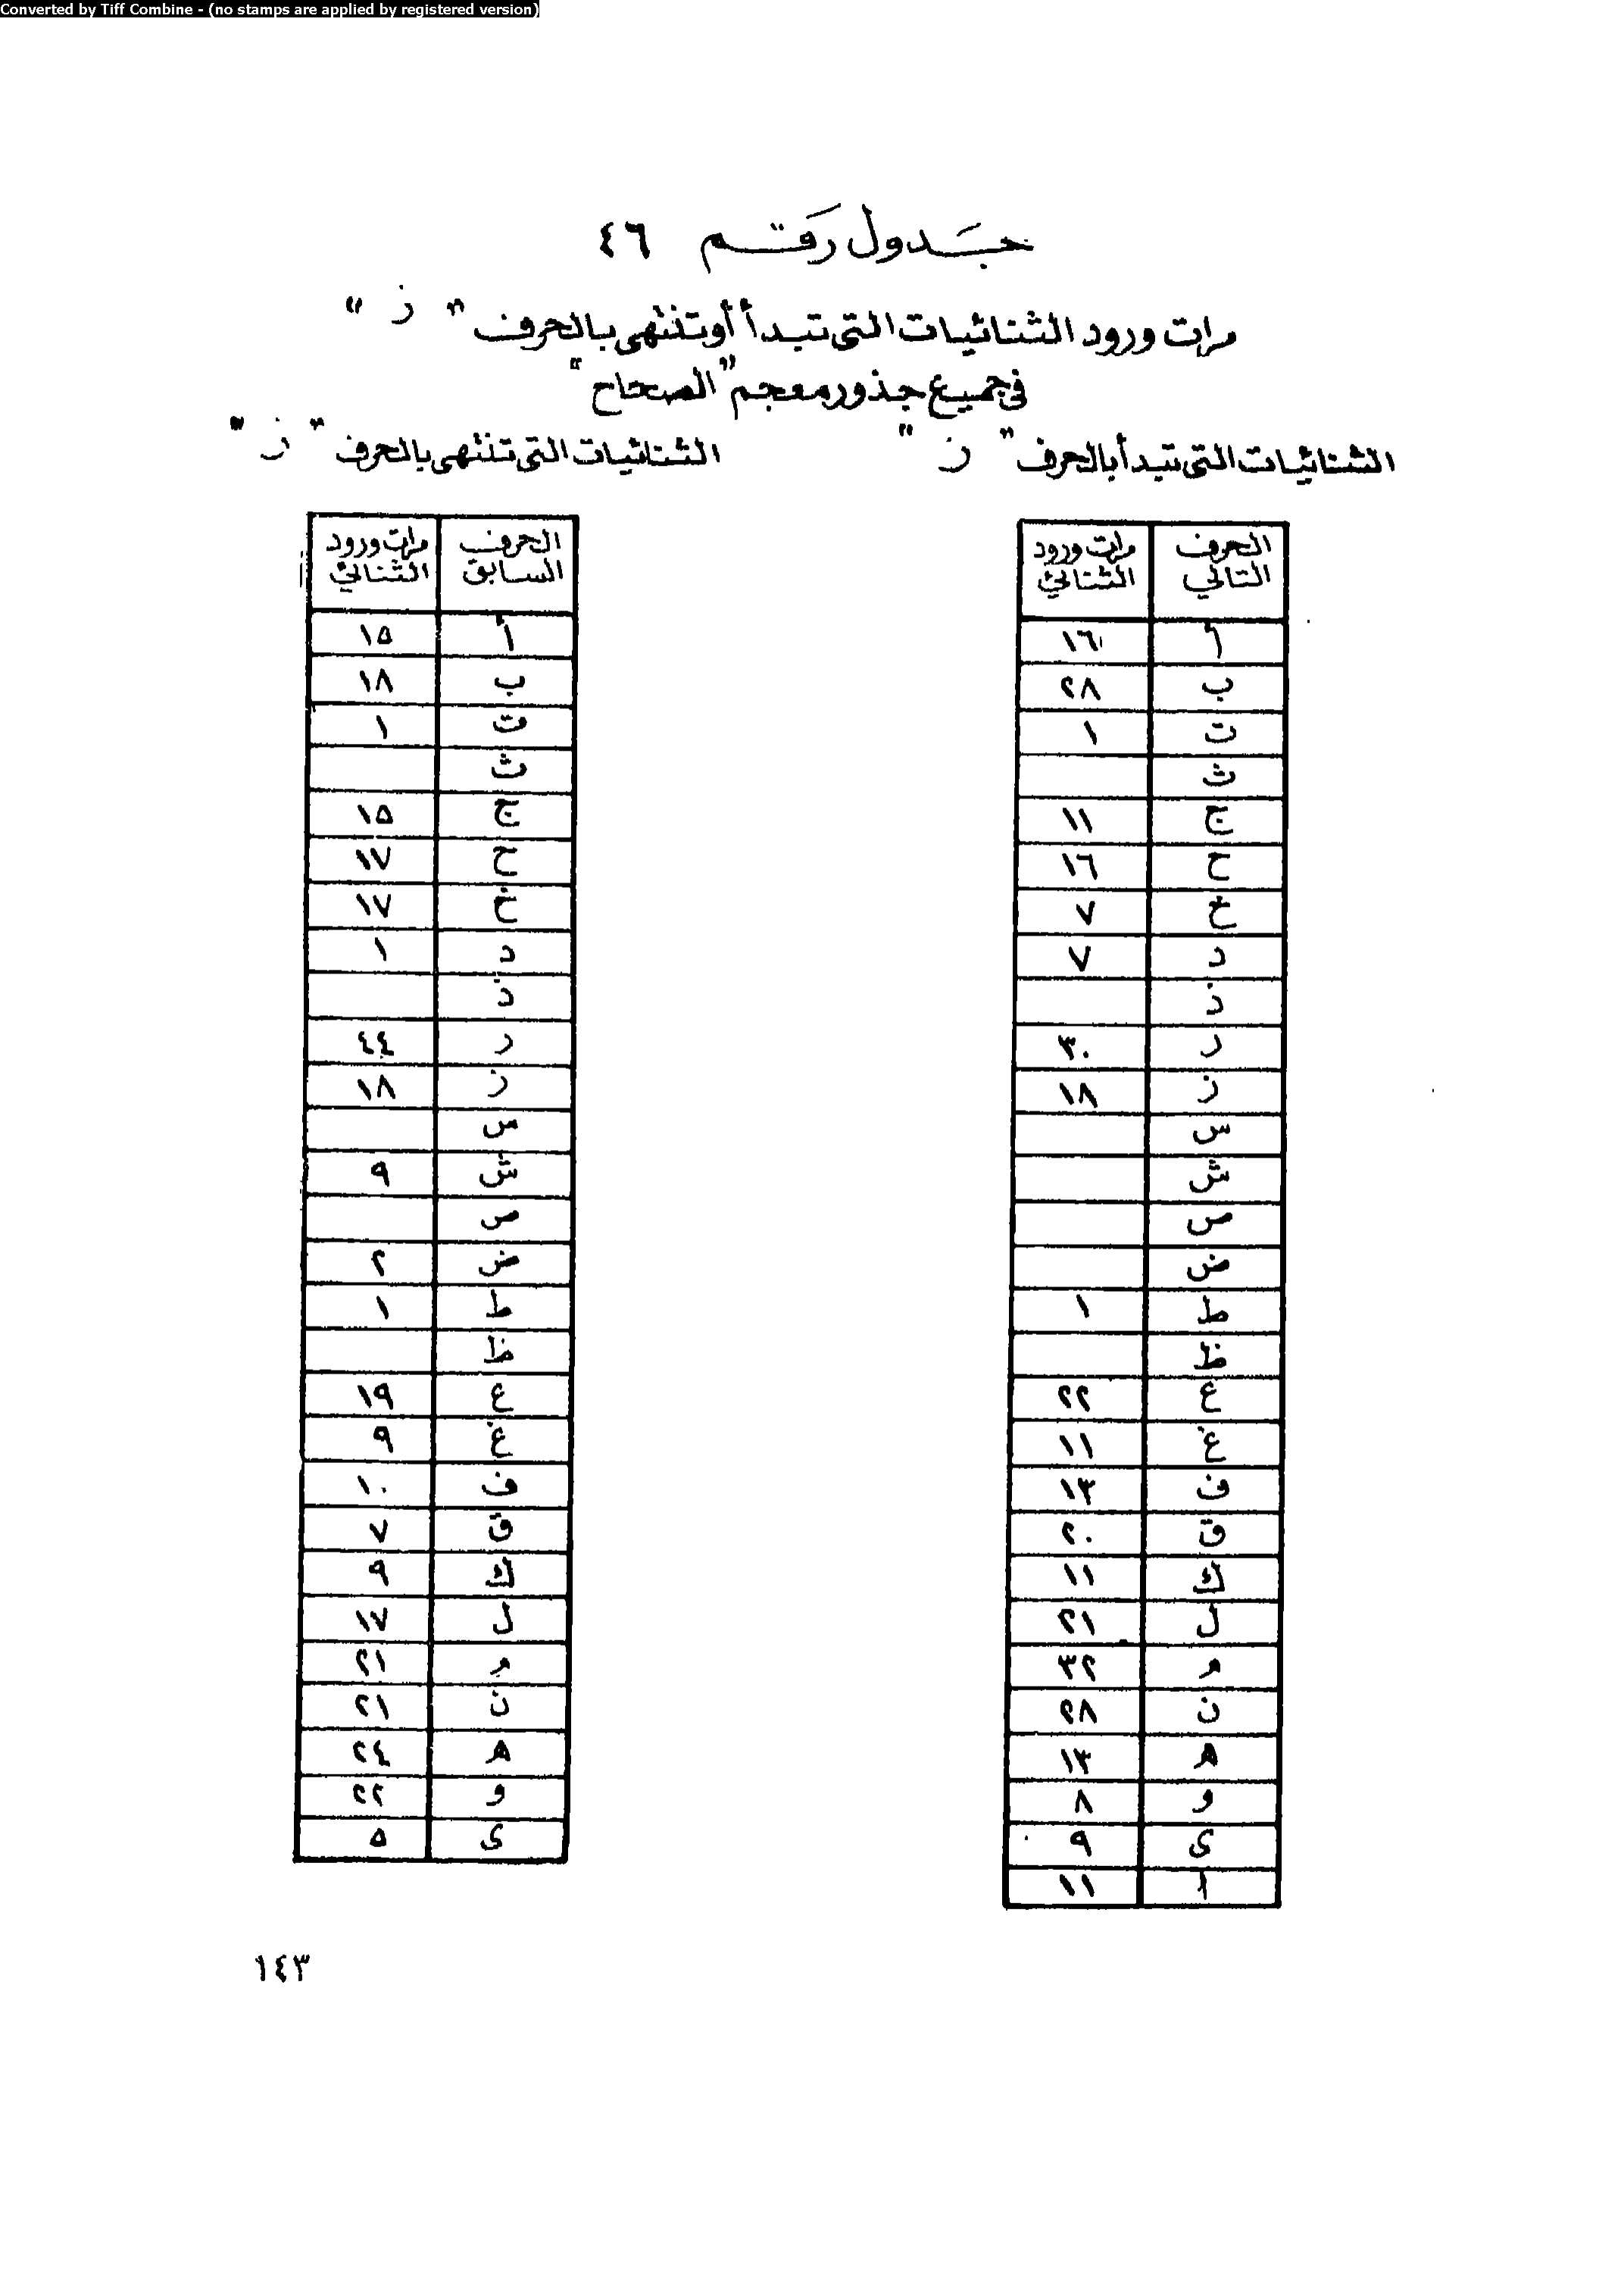 Converted by Tiff Combine - (no stamps are applied by registered version)
جدول رقم ٤٦
مرات ورود الثنائيات التى تبدأ أو تنتهى بالحرف " ز "
فى جميع جذور معجم "الصحاح"
الثنائيات التى تبدأ بالحرف " ز "
الحرف التالي مرات ورود الثنائي
أ ١٦
ب ٢٨
ت ١
ث
ج ١١
ح ١٦
خ ٧
د ٧
ذ
ر ٣٠
ز ١٨
س
ش
ص
ض
ط ١
ظ
ع ٢٢
غ ١١
ف ١٣
ق ٢٠
ك ١١
ل ٢١
م ٣٢
ن ٢٨
ه ١٣
و ٨
ى ٩
ا ١١
الثنائيات التى تنتهى بالحرف " ز "
الحرف السابق مرات ورود الثنائي
أ ١٥
ب ١٨
ت ١
ث
ج ١٥
ح ١٧
خ ١٧
د ١
ذ
ر ٤٤
ز ١٨
س
ش ٩
ص
ض ٢
ط ١
ظ
ع ١٩
غ ٩
ف ١٠
ق ٧
ك ٩
ل ١٧
م ٢١
ن ٢١
ه ٢٤
و ٢٢
ى ٥
١٤٣